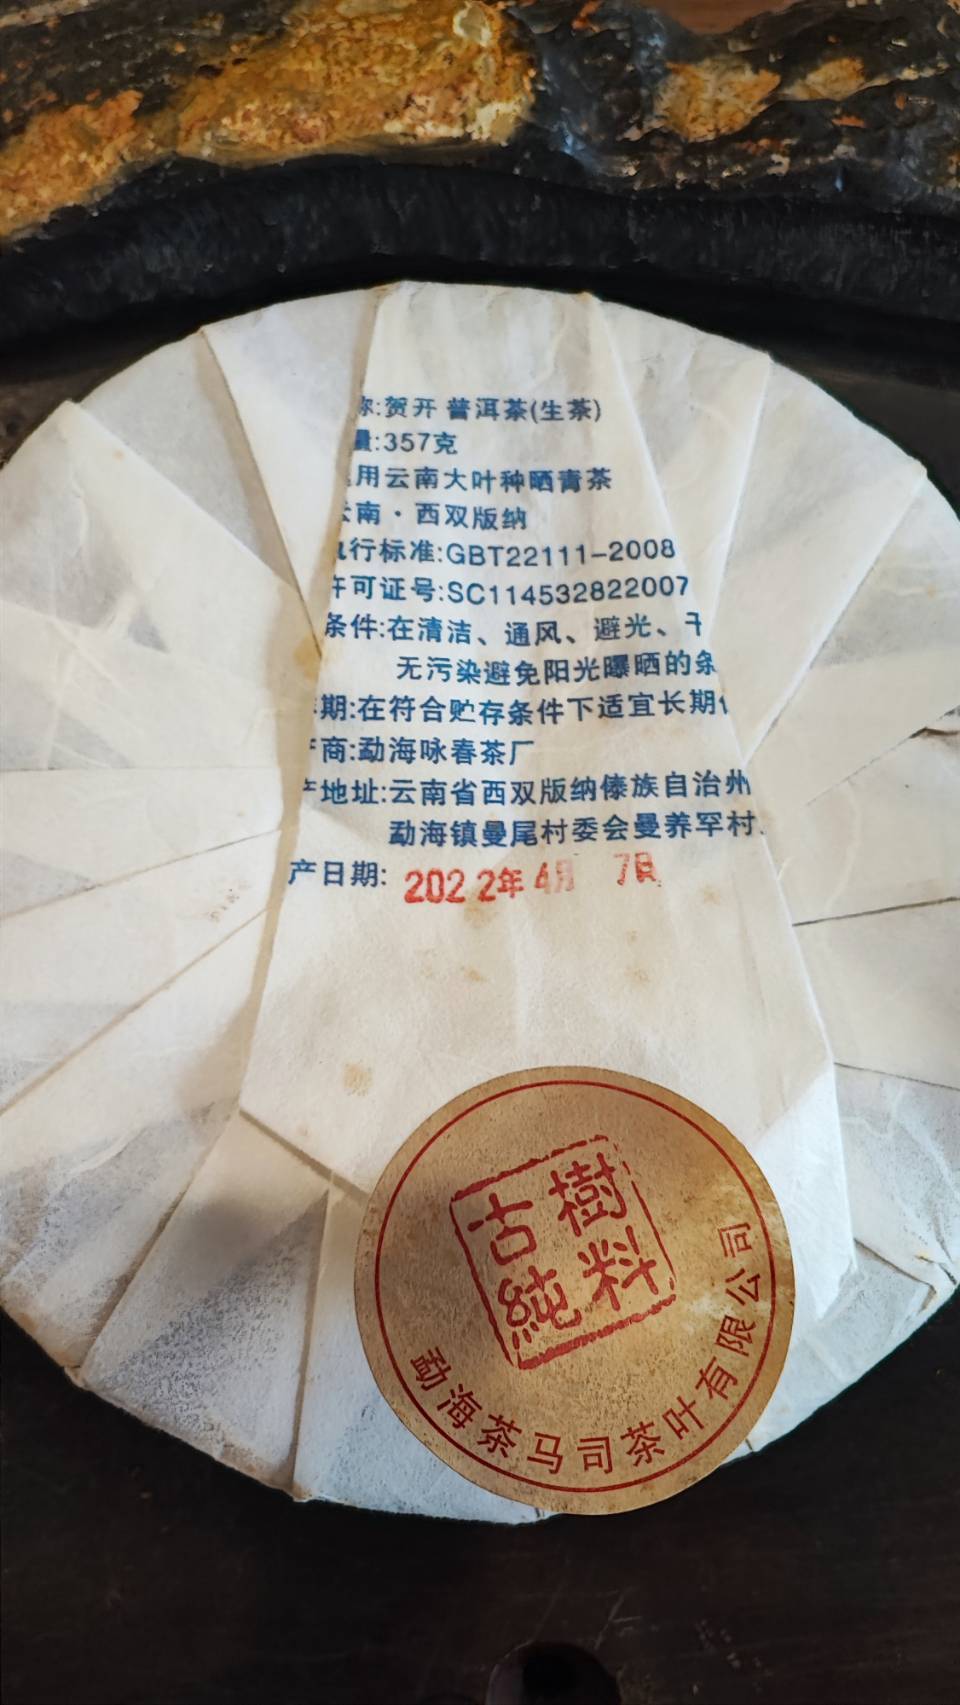 称:贺开 普洱茶(生茶)
量:357克
用云南大叶种晒青茶
云南·西双版纳
执行标准:GBT22111-2008
许可证号:SC114532822007
条件:在清洁、通风、避光、干
无污染避免阳光曝晒的条
期:在符合贮存条件下适宜长期
商:勐海咏春茶厂
产地址:云南省西双版纳傣族自治州
勐海镇曼尾村委会曼养罕村
产日期: 2022年4月 7日
古樹
純料
勐海茶马司茶叶有限公司